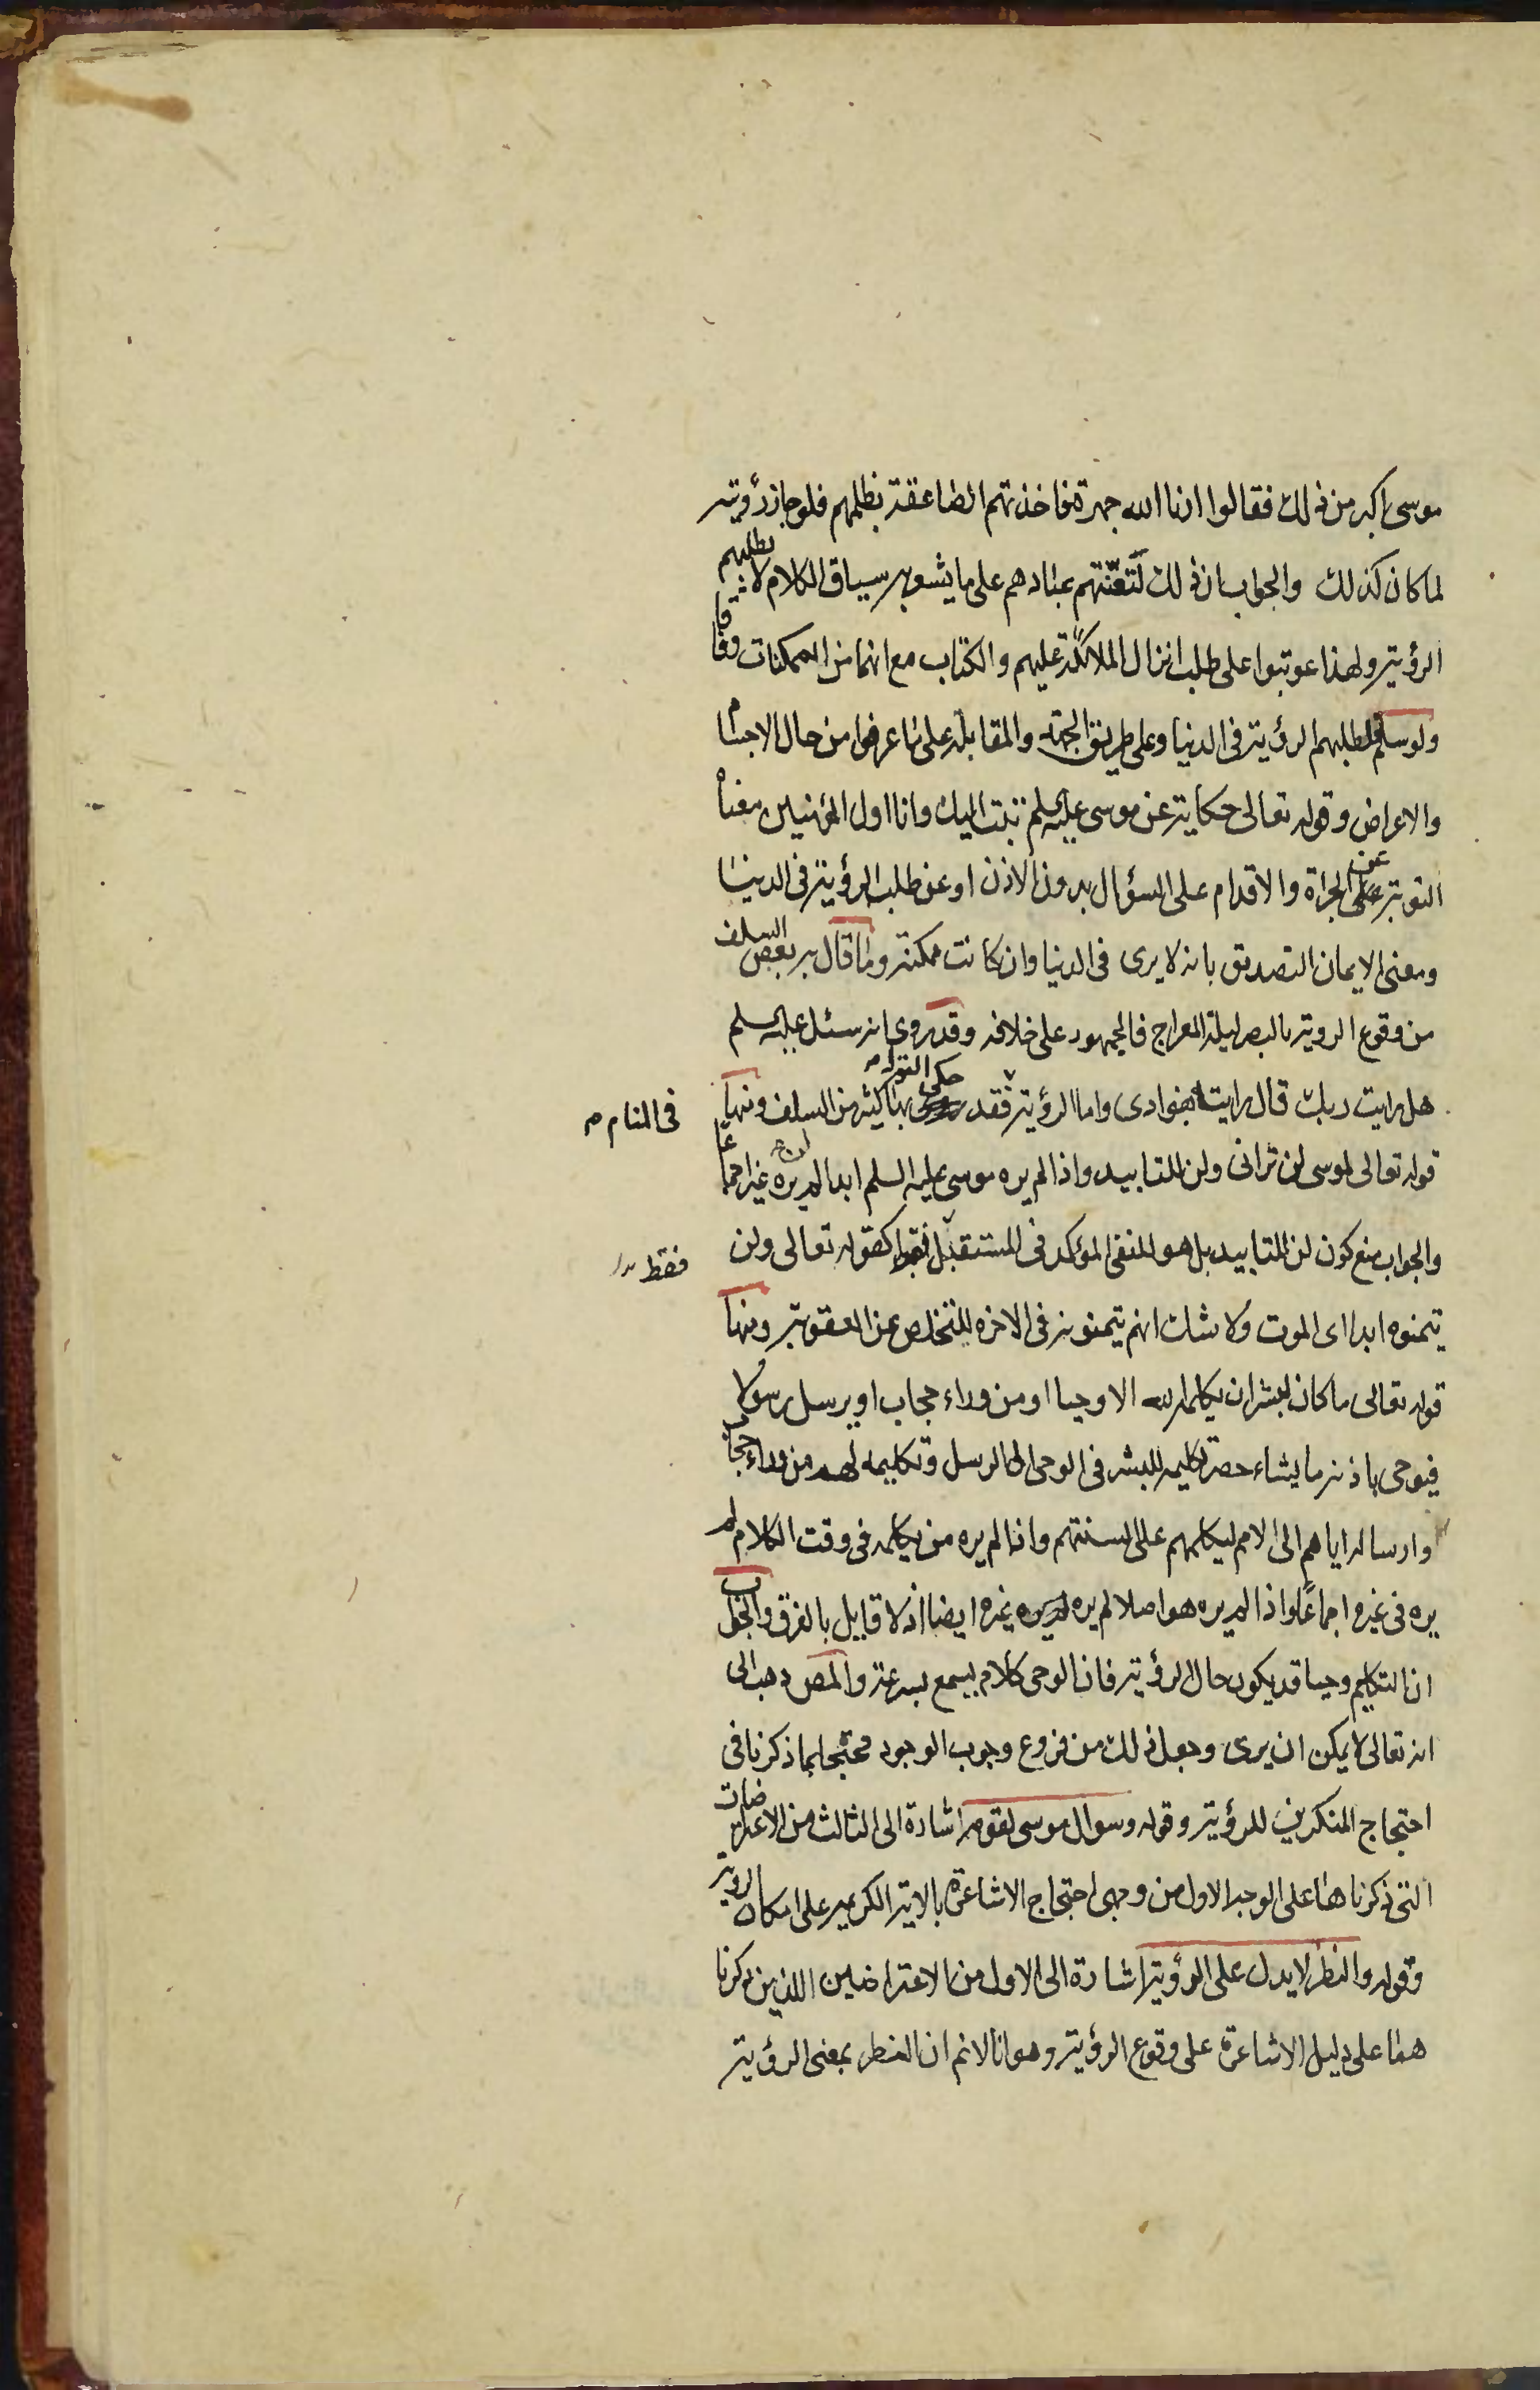 موسى اكبر من ذلك فقالوا ارنا الله جهرة فاخذتهم الصاعقة بظلمهم فلو جاز رؤيته
لما كان كذلك والجواب ان ذلك لتعنّتهم عنادهم على ما يشعر به سياق الكلام لا لطلبهم
الرؤية ولهذا عوتبوا على طلب انزال الملائكة عليهم والكتاب مع انهما من الممكنات وفاقا
ولو سلم فلطلبهم الرؤية فى الدنيا وعلى طريق الجهة والمقابلة على ما عرفوا من حال الاجسام
والاعراض وقوله تعالى حكاية عن موسى عليه السلم تبت اليك وانا اول المؤمنين معناه
التوبة عن الجرأة والاقدام على السؤال بدون الاذن او عن طلب الرؤية فى الدنيا
ومعنى الايمان التصديق بانه لا يرى فى الدنيا وان كانت ممكنة وما قال به بعض السلف
من وقوع الروية بالبصر ليلة المعراج فالجمهور على خلافه وقد روى انه سئل عليه السلم
هل رايت ربك قال رايته بفوادى واما الرؤية فقد حكى القول بها كثير من السلف ومنها
فى المنام
قوله تعالى لموسى لن ترانى ولن للتابيد واذا لم يره موسى عليه السلم ابدا لم يره غيره اجماعا
والجواب منع كون لن للتابيد بل هو للنفى المؤكد فى المستقبل كقوله تعالى ولن
فقط
يتمنوه ابدا اى الموت ولا شك انهم يتمنونه فى الاخره للتخلص عن العقوبة ومنها
قوله تعالى ما كان لبشر ان يكلمه الله الا وحيا او من وراء حجاب او يرسل رسولا
فيوحى باذنه ما يشاء حصر تكليمه للبشر فى الوحى الى الرسل وتكليمه لهم من وراء حجاب
وارساله اياهم الى الامم ليكلمهم على السنتهم واذا لم يره من يكلمه فى وقت الكلام لم
يره فى غيره اجماعا واذا لم يره هو اصلا لم يره غيره ايضا اذ لا قايل بالفرق والجواب
ان التكليم وحيا قد يكون حال الرؤية فان الوحى كلام يسمع بسرعة والمص ذهب الى
انه تعالى لا يمكن ان يرى وجعل ذلك من فروع وجوب الوجود محتجا بما ذكرنا فى
احتجاج المنكرين للرؤية وقوله وسوال موسى لقومه اشارة الى الثالث من الاعتراضات
التى ذكرناها على الوجه الاول من وجهى احتجاج الاشاعرة بالاية الكريمة على امكان الروية
وقوله والنظر لا يدل على الرؤية اشارة الى الاول من الاعتراضين اللذين ذكرنا
هما على دليل الاشاعرة على وقوع الرؤية وهو انا لا نم ان النظر بمعنى الرؤية